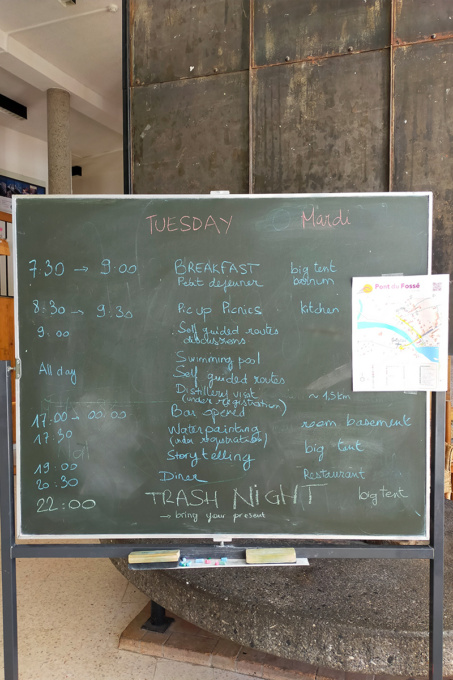 TUESDAY Mardi
7.30 → 9.00 BREAKFAST big tent
Petit dejeuner barnum
8:30 → 9:30 Pic up Picnics kitchen
9.00 Self guided routes
discussions
Swimming pool
All day Self guided routes
Distillery visit ~ 1.3 km
(under registration)
17:00 → 00:00 Bar opened room basement
17:30 Waterpainting
(under registration) big tent
19.00 Storytelling
20.30 Diner Restaurant
22:00 TRASH NIGHT big tent
→ bring your present
Pont du Fossé